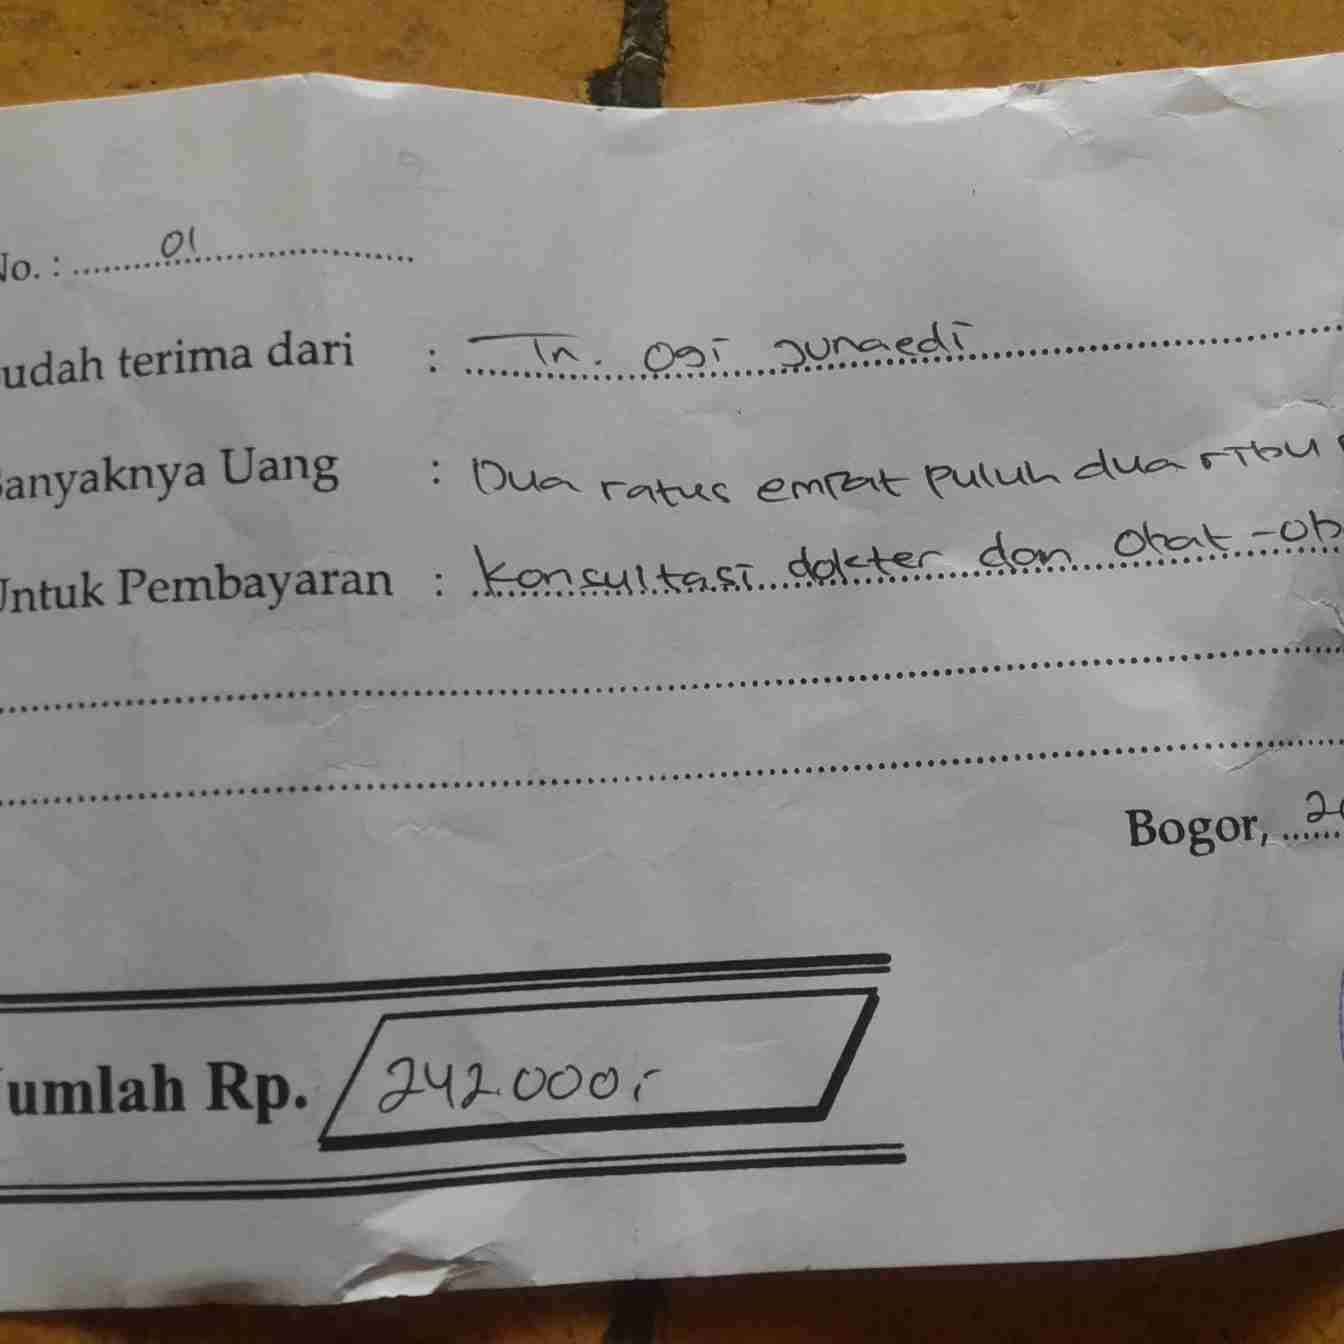 No. : 01
udah terima dari : Tn. Ogi Junaedi
Banyaknya Uang : Dua ratus empat puluh dua ribu
Untuk Pembayaran : Konsultasi dokter dan Obat-ob
Bogor, 2
Jumlah Rp. 242.000,-